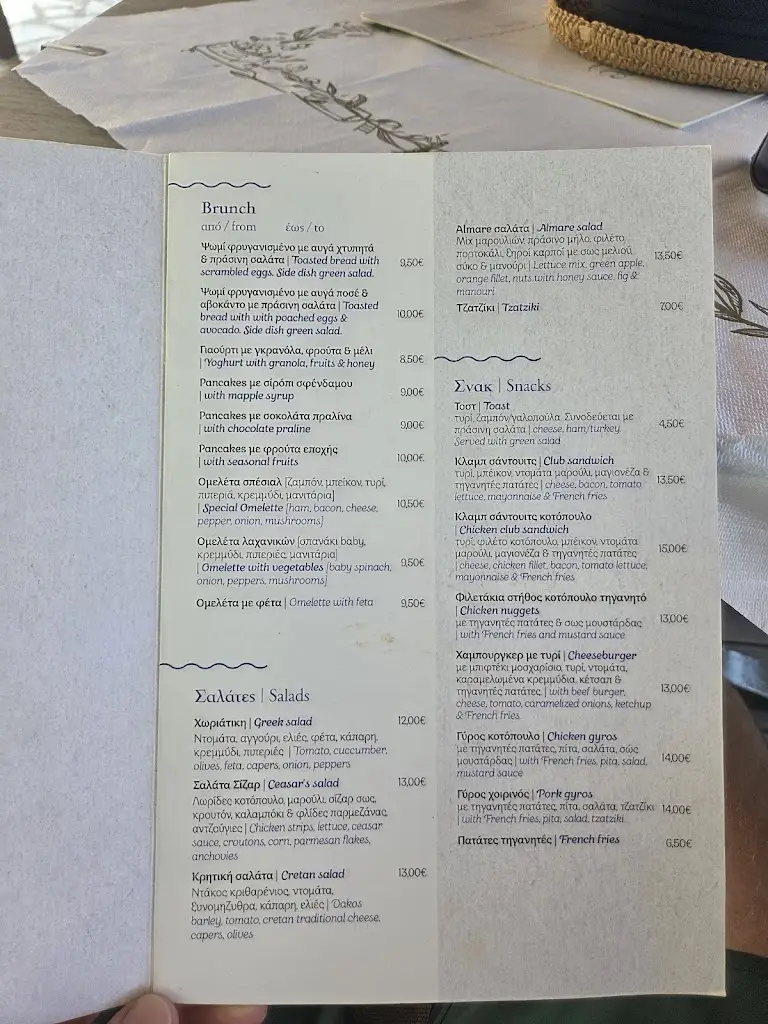 Brunch
από / from έως / to
Ψωμί φρυγανισμένο με αυγά χτυπητά
& πράσινη σαλάτα | Toasted bread with
scrambled eggs. Side dish green salad.
9,50€
Ψωμί φρυγανισμένο με αυγά ποσέ &
αβοκάντο με πράσινη σαλάτα | Toasted
bread with with poached eggs &
avocado. Side dish green salad.
10,00€
Γιαούρτι με γκρανόλα, φρούτα & μέλι
| Yoghurt with granola, fruits & honey
8,50€
Pancakes με σιρόπι σφένδαμου
| with mapple syrup
9,00€
Pancakes με σοκολάτα πραλίνα
| with chocolate praline
9,00€
Pancakes με φρούτα εποχής
| with seasonal fruits
10,00€
Ομελέτα σπέσιαλ [ζαμπόν, μπέικον, τυρί,
πιπεριά, κρεμμύδι, μανιτάρια]
| Special Omelette [ham, bacon, cheese,
pepper, onion, mushrooms]
10,50€
Ομελέτα λαχανικών [σπανάκι baby,
κρεμμύδι, πιπεριές, μανιτάρια]
| Omelette with vegetables [baby spinach,
onion, peppers, mushrooms]
9,50€
Ομελέτα με φέτα | Omelette with feta 9,50€
Σαλάτες | Salads
Χωριάτικη | Greek salad 12,00€
Ντομάτα, αγγούρι, ελιές, φέτα, κάπαρη,
κρεμμύδι, πιπεριές | Tomato, cuccumber,
olives, feta, capers, onion, peppers
Σαλάτα Σίζαρ | Ceasar's salad 13,00€
Λωρίδες κοτόπουλο, μαρούλι, σίζαρ σως,
κρουτόν, καλαμπόκι & φλίδες παρμεζάνας,
αντζούγιες | Chicken strips, lettuce, ceasar
sauce, croutons, corn, parmesan flakes,
anchovies
Κρητική σαλάτα | Cretan salad 13,00€
Ντάκος κριθαρένιος, ντομάτα,
ξυνομηζυθρα, κάπαρη, ελιές | Dakos
barley, tomato, cretan traditional cheese,
capers, olives
Almare σαλάτα | Almare salad
Mix μαρουλιών, πράσινο μήλο, φιλέτο
πορτοκάλι, ξηροί καρποί με σως μελιού,
σύκο & μανούρι | Lettuce mix, green apple,
orange fillet, nuts with honey sauce, fig &
manouri
13,50€
Τζατζίκι | Tzatziki 7,00€
Σνακ | Snacks
Τοστ | Toast
τυρί, ζαμπόν/γαλοπούλα. Συνοδεύεται με
πράσινη σαλάτα | cheese, ham/turkey.
Served with green salad
4,50€
Κλαμπ σάντουιτς | Club sandwich
τυρί, μπέικον, ντομάτα μαρούλι, μαγιονέζα &
τηγανητές πατάτες | cheese, bacon, tomato
lettuce, mayonnaise & French fries
13,50€
Κλαμπ σάντουιτς κοτόπουλο
| Chicken club sandwich
τυρί, φιλέτο κοτόπουλο, μπέικον, ντομάτα
μαρούλι, μαγιονέζα & τηγανητές πατάτες
| cheese, chicken fillet, bacon, tomato lettuce,
mayonnaise & French fries
15,00€
Φιλετάκια στήθος κοτόπουλο τηγανητό
| Chicken nuggets
με τηγανητές πατάτες & σως μουστάρδας
| with French fries and mustard sauce
13,00€
Χαμπουργκερ με τυρί | Cheeseburger
με μπιφτέκι μοσχαρίσιο, τυρί, ντομάτα,
καραμελωμένα κρεμμύδια, κέτσαπ &
τηγανητές πατάτες, | with beef burger,
cheese, tomato, caramelized onions, ketchup
& French fries
13,00€
Γύρος κοτόπουλο | Chicken gyros
με τηγανητές πατάτες, πίτα, σαλάτα, σώς
μουστάρδας | with French fries, pita, salad,
mustard sauce
14,00€
Γύρος χοιρινός | Pork gyros
με τηγανητές πατάτες, πίτα, σαλάτα, τζατζίκι
| with French fries, pita, salad, tzatziki
14,00€
Πατάτες τηγανητές | French fries 6,50€